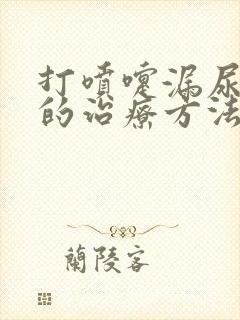 打噴嚏漏尿
的治療方法
蘭陵客